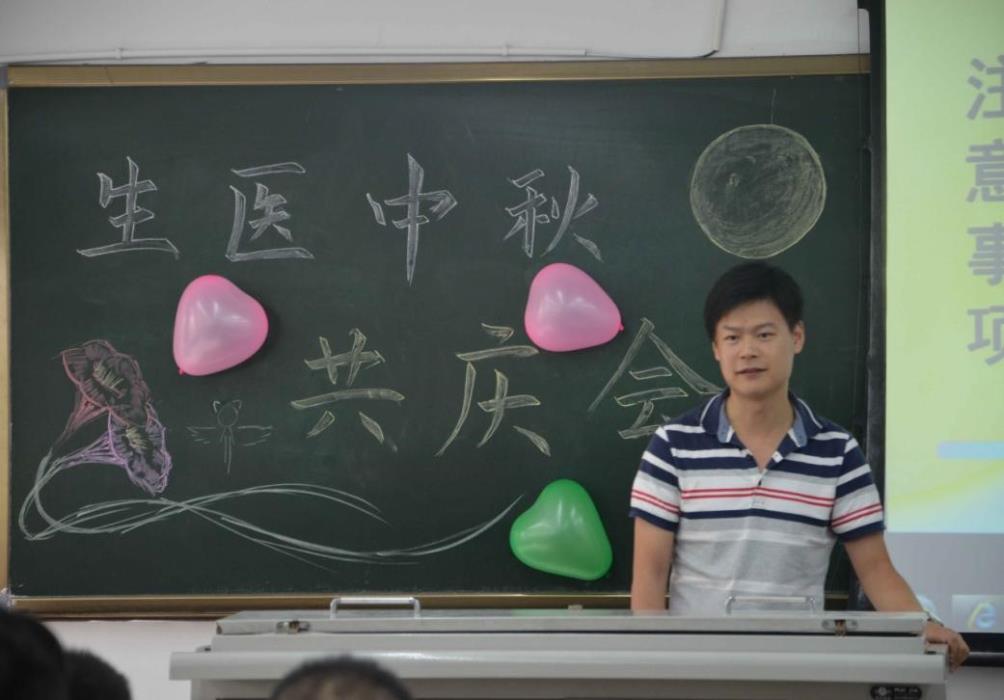 生医中秋
共庆会
注意事项